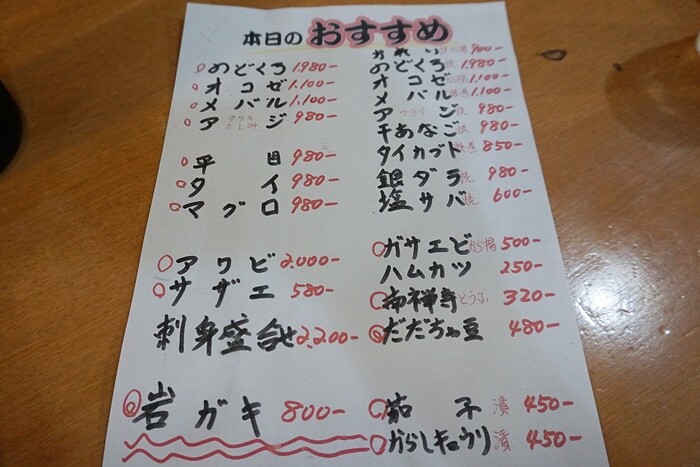 本日のおすすめ
のどくろ 1.980-
オコゼ 1.100-
メバル 1.100-
アジ 980-
平目 980-
タイ 980-
マグロ 980-
アワビ 2.000-
サザエ 580-
刺身盛合せ 2.200-
岩ガキ 800-
かれい 900-
のどくろ 焼 1.980-
オコゼ 1.100-
メバル 1.100-
アジ フライ 焼 980-
干あなご 焼 980-
タイカブト 850-
銀ダラ 焼 980-
塩サバ 焼 600-
ガサエビ から揚 500-
ハムカツ 250-
南禅寺とうふ 320-
だだちゃ豆 480-
茄子 漬 450-
からしキュウリ 漬 450-